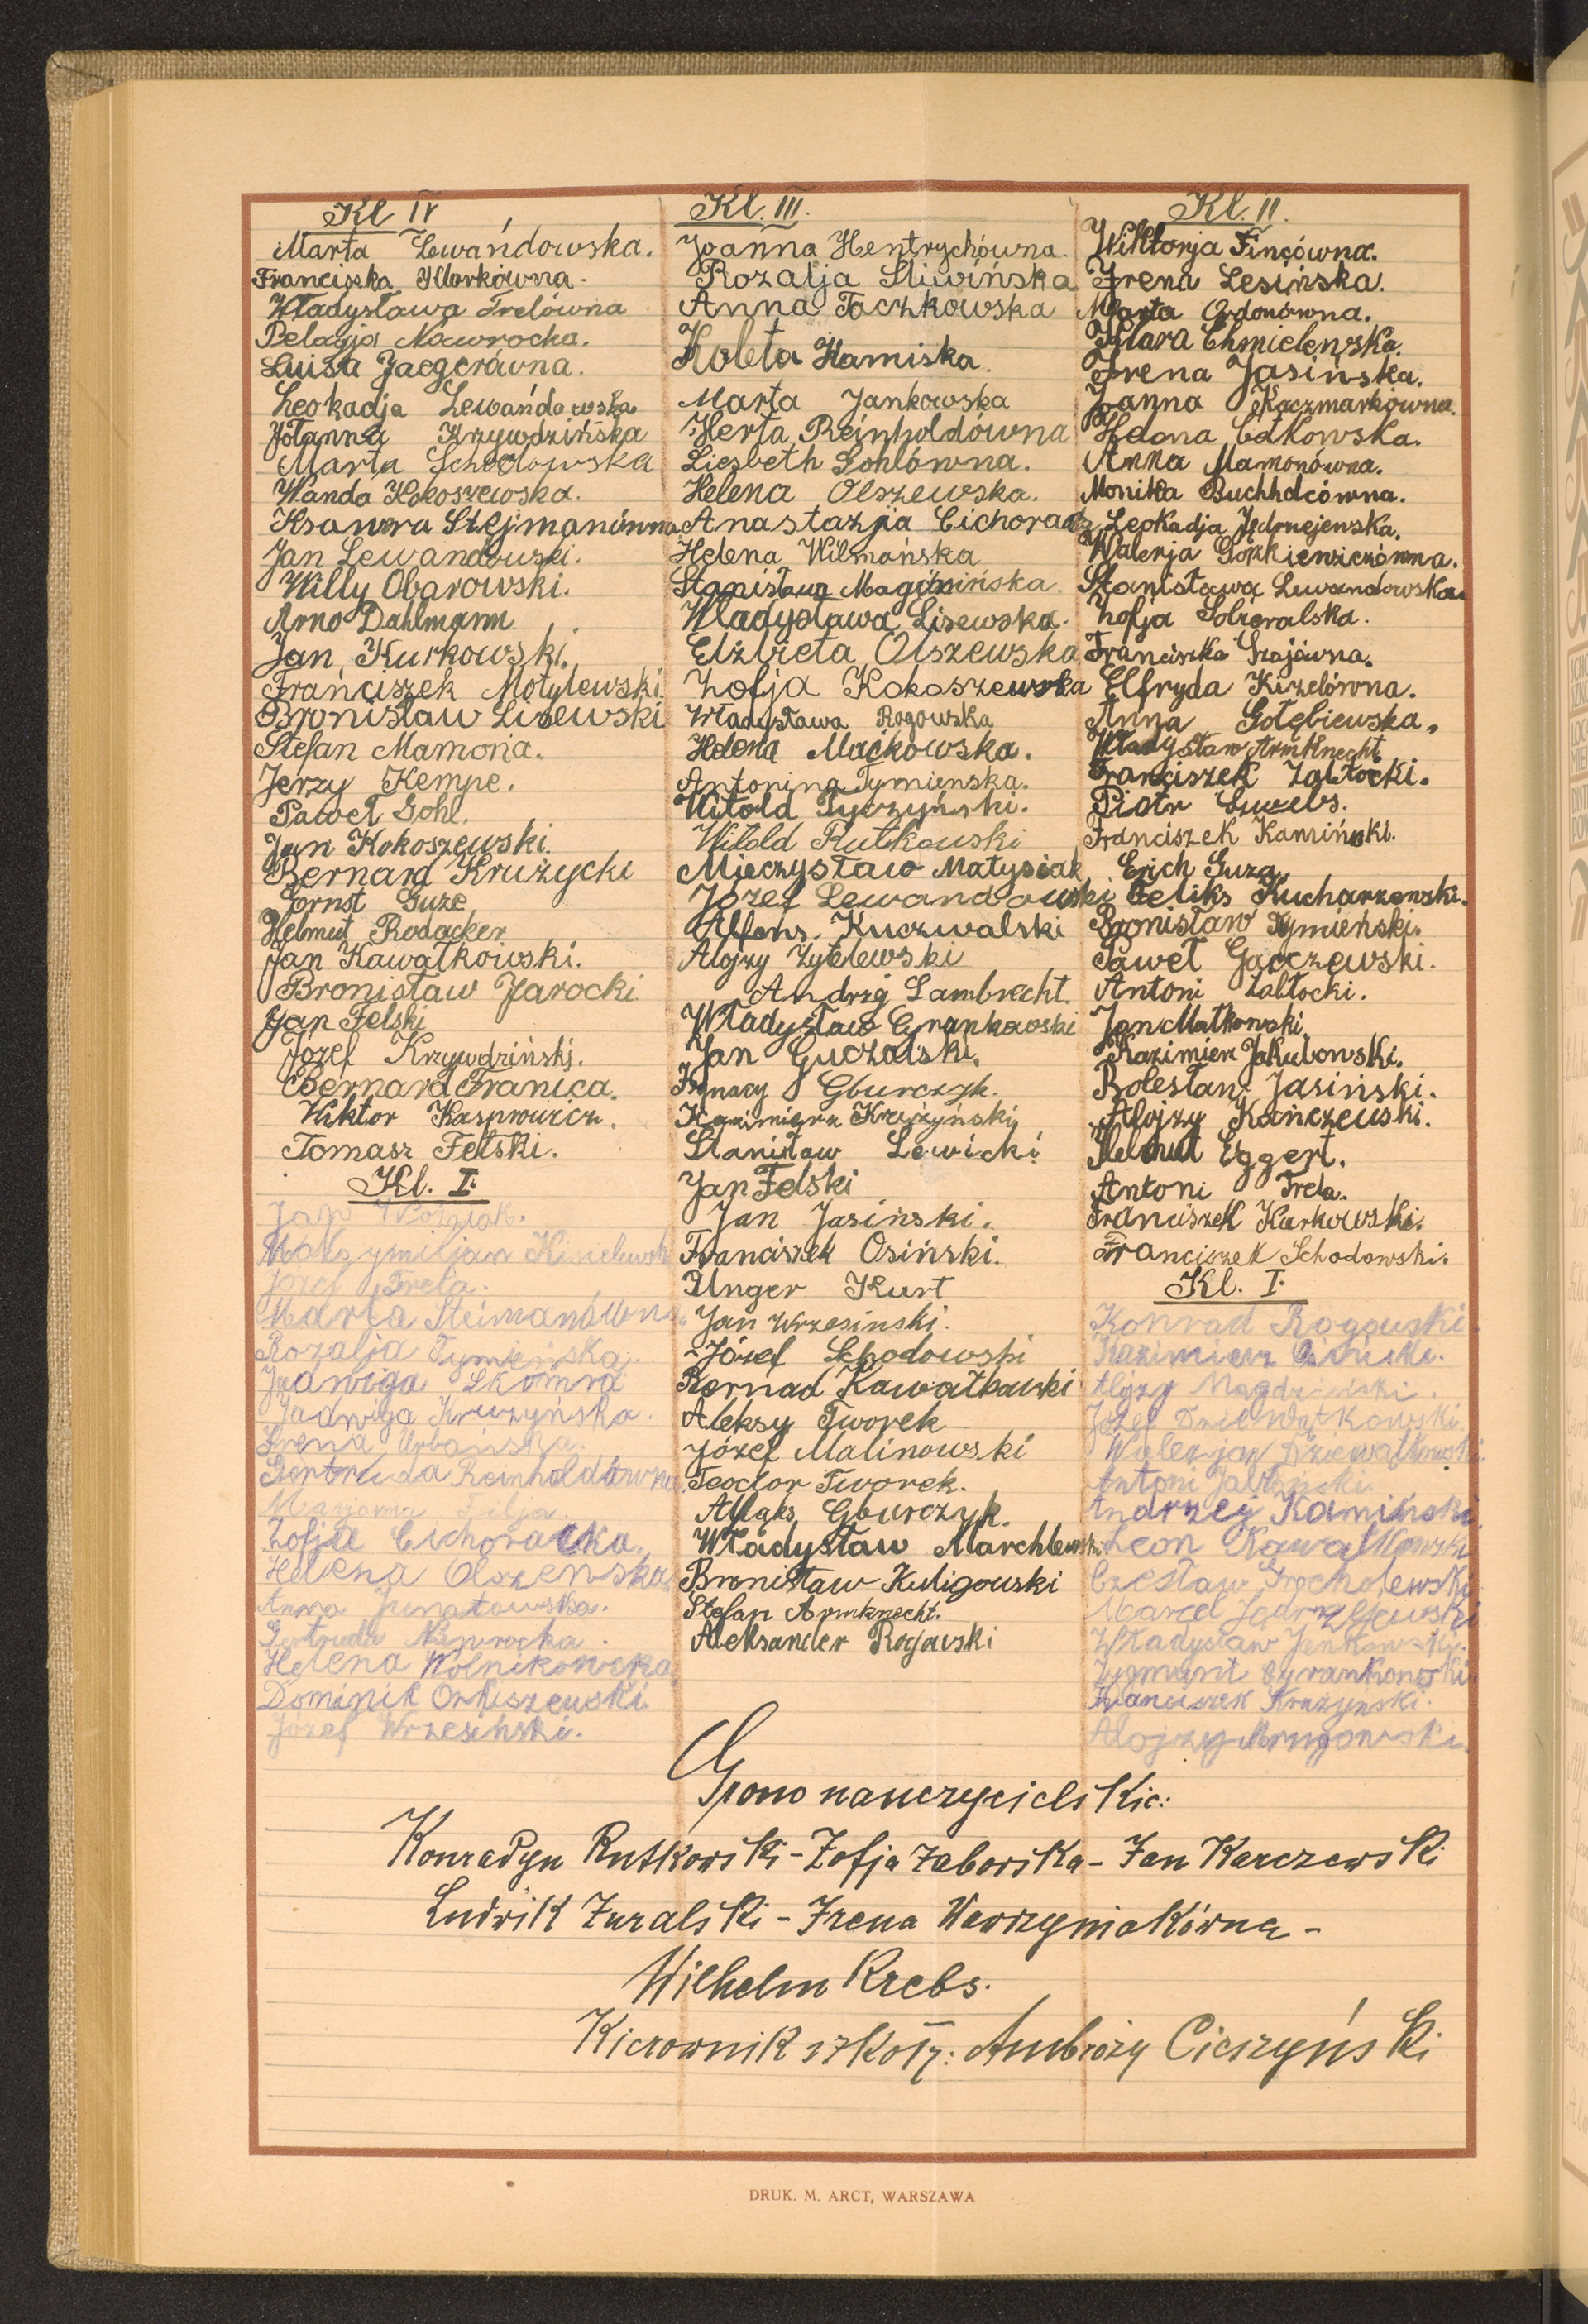 Kl IV
Marta Lewańdowska.
Franciszka Klarkówna.
Władysława Trelówna
Pelagja Nawrocka.
Luisa Jaegerówna.
Leokadja Lewańdowska
Johanna Krzywdzińska
Marta Schodowska
Wanda Kokoszewska.
Ksawera Sztejmanówna
Jan Lewandowski.
Willy Obarowski.
Arno Dahlmann
Jan Kurkowski.
Franciszek Motylewski.
Bronisław Lisewski
Stefan Mamona.
Jerzy Kempe.
Paweł Gohl.
Jan Kokoszewski.
Bernard Krużycki
Ernst Guze
Helmut Rodacker
Jan Kawałkowski.
Bronisław Jarocki
Jan Felski
Józef Krzywdziński.
Bernard Franica.
Wiktor Kasprowicz.
Tomasz Felski.
Kl. I.
Jan Woźniak.
Maksymiljan Kisielewski
Józef Trela.
Marta Steimanówna
Rozalja Tymieńska.
Jadwiga Skomra
Jadwiga Kruzyńska.
Irena Urbańska.
Gertruda Reinholdówna
Marjanna Filja
Zofja Cichoracka.
Helena Olszewska
Anna Junatowska.
Gertruda Nawrocka.
Helena Wolnikowska
Dominik Orliszewski.
Józef Wrzesiński.
Kl. III.
Joanna Hentrychówna.
Rozalja Śliwińska
Anna Taczkowska
Koleta Kamiska.
Marta Jankowska
Herta Reinholdówna
Liesbeth Gohlówna.
Helena Olszewska.
Anastazja Cichoracz
Helena Wilmańska
Stanisława Magdzińska.
Władysława Lisewska.
Elżbieta Olszewska
Zofja Kokoszewska
Władysława Rogowska
Helena Maćkowska.
Antonina Tymienska.
Witold Tyczyński.
Witold Rutkowski
Mieczysław Matysiak
Józef Lewandowski
Alfons Kuczwalski
Alojzy Żytelewski
Andrzej Lambrecht.
Władysław Cyrankowski
Jan Guczalski.
Ignacy Gburczyk.
Kazimierz Krużyński
Stanisław Lewicki
Jan Felski
Jan Jasiński.
Franciszek Osiński.
Unger Kurt
Jan Wrzesinski.
Józef Schodowski
Bernad Kawałkowski
Aleksy Tworek
Józef Malinowski
Teodor Tworek.
Maks Gburczyk.
Władysław Marchlewski
Bronisław Kuligowski
Stefan Armknecht.
Aleksander Rogowski
Kl. II.
Wiktorja Fincówna.
Irena Lesińska.
Marta Ordonówna.
Klara Chmielewska.
Irena Jasińska.
Joanna Kaczmarkówna.
Helena Cetkowska.
Anna Mamonówna.
Monika Buchholcówna.
Leokadja Jędrzejewska.
Walerja Gorzkiewiczówna.
Stanisława Lewandowska
Zofja Sobieralska.
Franciszka Szajówna.
Elfryda Kizelówna.
Anna Gołębiewska.
Władysław Armknecht
Franciszek Zabłocki.
Piotr Luwebs.
Franciszek Kamiński.
Erich Guza.
Feliks Kucharzewski.
Bronisław Tymieński.
Paweł Gaczewski.
Antoni Zabłocki.
Jan Matkowski
Kazimierz Jakubowski.
Bolesław Jasiński.
Alojzy Kańczewski.
Helmut Eggert.
Antoni Trela.
Franciszek Kurkowski.
Franciszek Schodowski.
Kl. I.
Konrad Rogowski.
Kazimierz Osiński.
Alojzy Magdziński.
Józef Dziewiątkowski
Walerjan Dziewałtowski
Antoni Jabłoński.
Andrzej Kamiński
Leon Kawałkowski
Czesław Grocholewski
Marcel Jędrzejewski
Władysław Jankowski.
Zygmunt Cyrankowski
Franciszek Kruzynski.
Alojzy Mrugowski.
Grono nauczycielskie:
Konradyn Rutkowski - Zofja Zaborska - Jan Karczewski
Ludwik Żuralski - Irena Wawrzyniakówna -
Wilhelm Krebs.
Kierownik szkoły: Ambroży Cieszyński
DRUK. M. ARCT, WARSZAWA